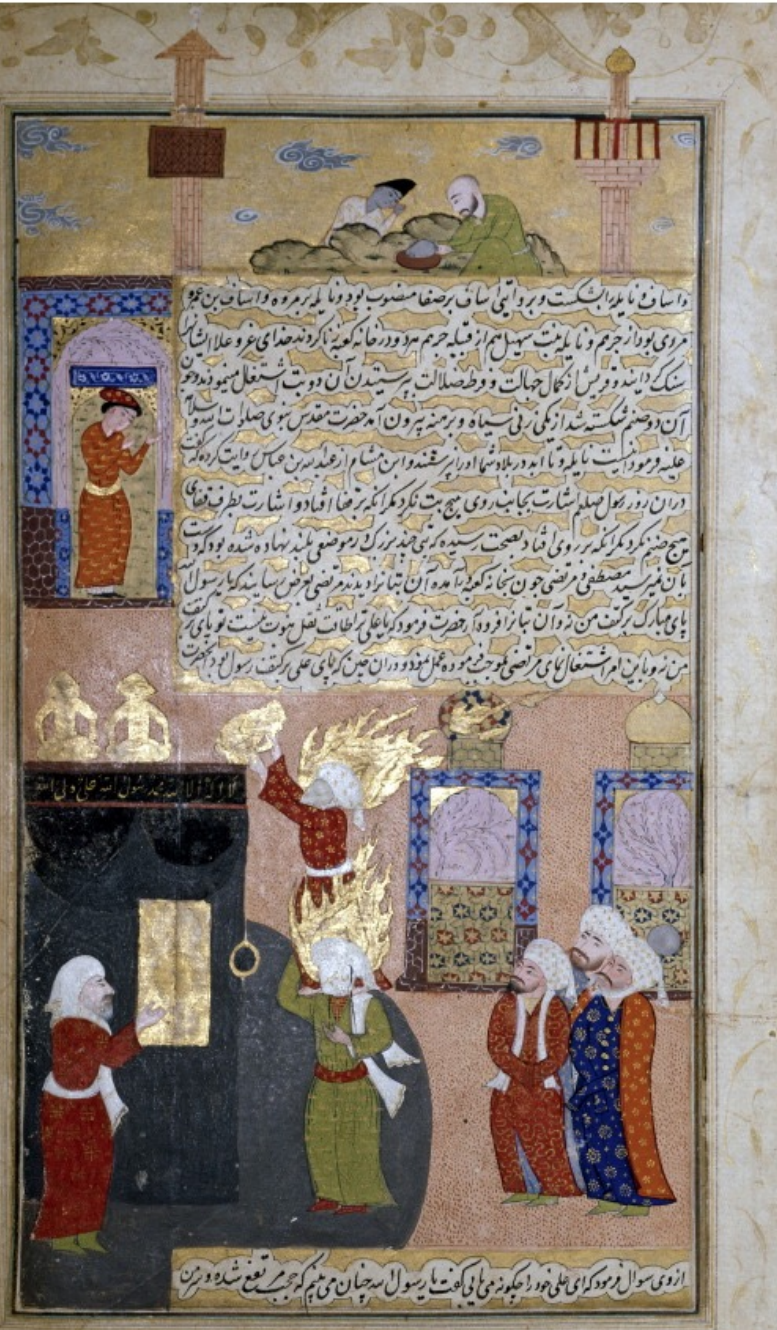 واساف و نایله را بشکست و بروایتی اساف بر صفا منصوب بود و نایله بر مروه و اساف بن عمرو
مردی بود از جرهم و نایله بنت سهیل هم از قبیله جرهم بود و در خانه کعبه زنا کردند خدای عز و علا ایشانرا
سنک کردانید و قریش از کمال جهالت و فرط ضلالت به پرستیدن آن دو بت اشتغال مینمودند و چون
آن دو صنم شکسته شد از یکی زنی سیاه و برهنه بیرون آمد حضرت مقدس نبوی صلوات الله وسلامه
علیه فرمود اینست نایله و تا ابد در بلاد شما او را نپرستند و ابن هشام از عبدالله بن عباس روایت کرده که گفت
دران روز رسول صلعم اشارت بجانب روی هیچ بت نکرد مکر انکه بر قفا افتاد و اشارت بطرف قفای
هیچ صنم نکرد مکر انکه بر روی افتاد بصحت رسیده که بتی چند بزرک در موضعی بلند نهاده شده بود که دست
بان نمیرسید مصطفی و مرتضی چون بخانه کعبه درآمده آن بتانرا دیدند مرتضی بعرض رسانید که یا رسول الله
پای مبارک بر کتف من نه و آن بتانرا فرود آر حضرت فرمود که یا علی ترا طاقت ثقل نبوت نیست تو پای بر کتف
من نه و باین امر اشتغال نمای مرتضی بموجب فرموده عمل نمود و دران حین که پای علی بر کتف رسول بود آنحضرت
لا اله الا الله محمد رسول الله علی ولی الله
از وی سوال فرمود که ای علی خود را چکونه می یابی کفت یا رسول الله چنان می بینم که حجب مرتفع شده و سر من